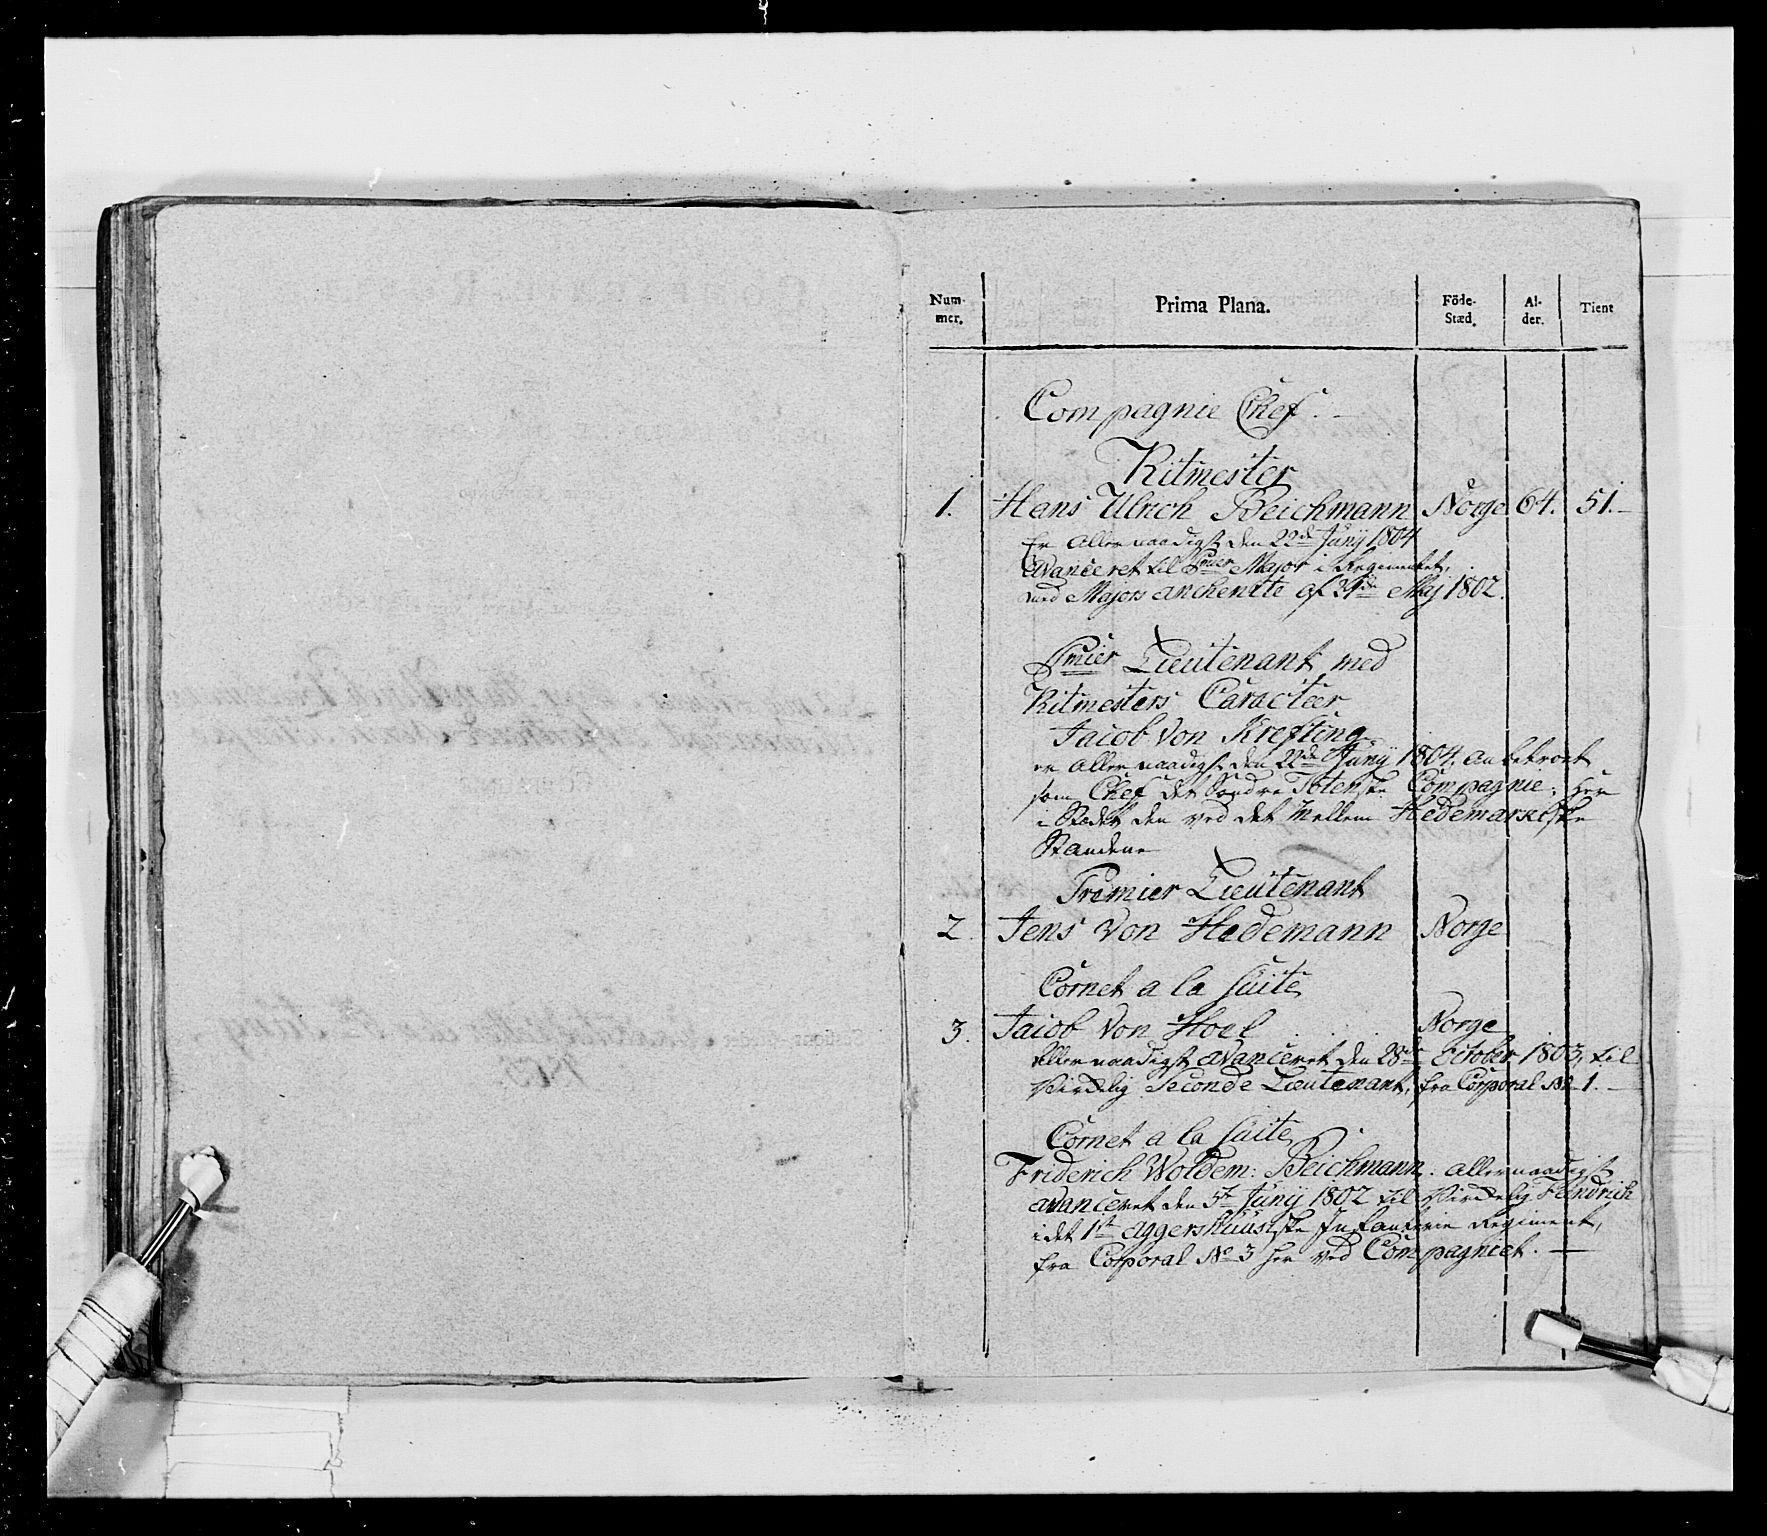 Num-
mer.
Prima Plana.
Föde-
Stæd.
Al-
der.
Tient
Compagnie Chef.
Ritmester
1. Hans Ulrich Beichmann Norge 64. 51.
Er allernaadigst den 22de Junÿ 1804
avanceret til Pmier Major i Regimentet,
med Majors anchenitte af Maj 1802.
Pmier Lieutenant med
Ritmesters Caracteer
Jacob von Krefting
er allernaadigst den 22de Junÿ 1804, anbetroet
som Chef det Søndre Totenske Compagnie, her
i Stædet den ved det Mellem Hedemarkske
Standene
Premier Lieutenant
2. Jens von Hedemann Norge
Cornet a la Suite
3. Jacob von Hoel Norge
Allernaadigst avanceret den 28de October 1803, til
Virkelig Seconde Lieutenant, fra Corporal No 1.
Cornet a la Suite
Friderich Woldem: Beichmann. allernaadigst
avanceret den 5te Junÿ 1802 til Virkelig Fendrich
i det 1ste Aggershuusiske Infanterie Regiment,
fra Corporal No 3 her ved Compagniet.